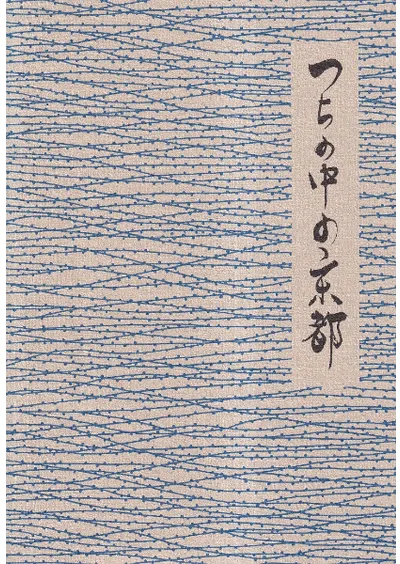 つちの中の京都